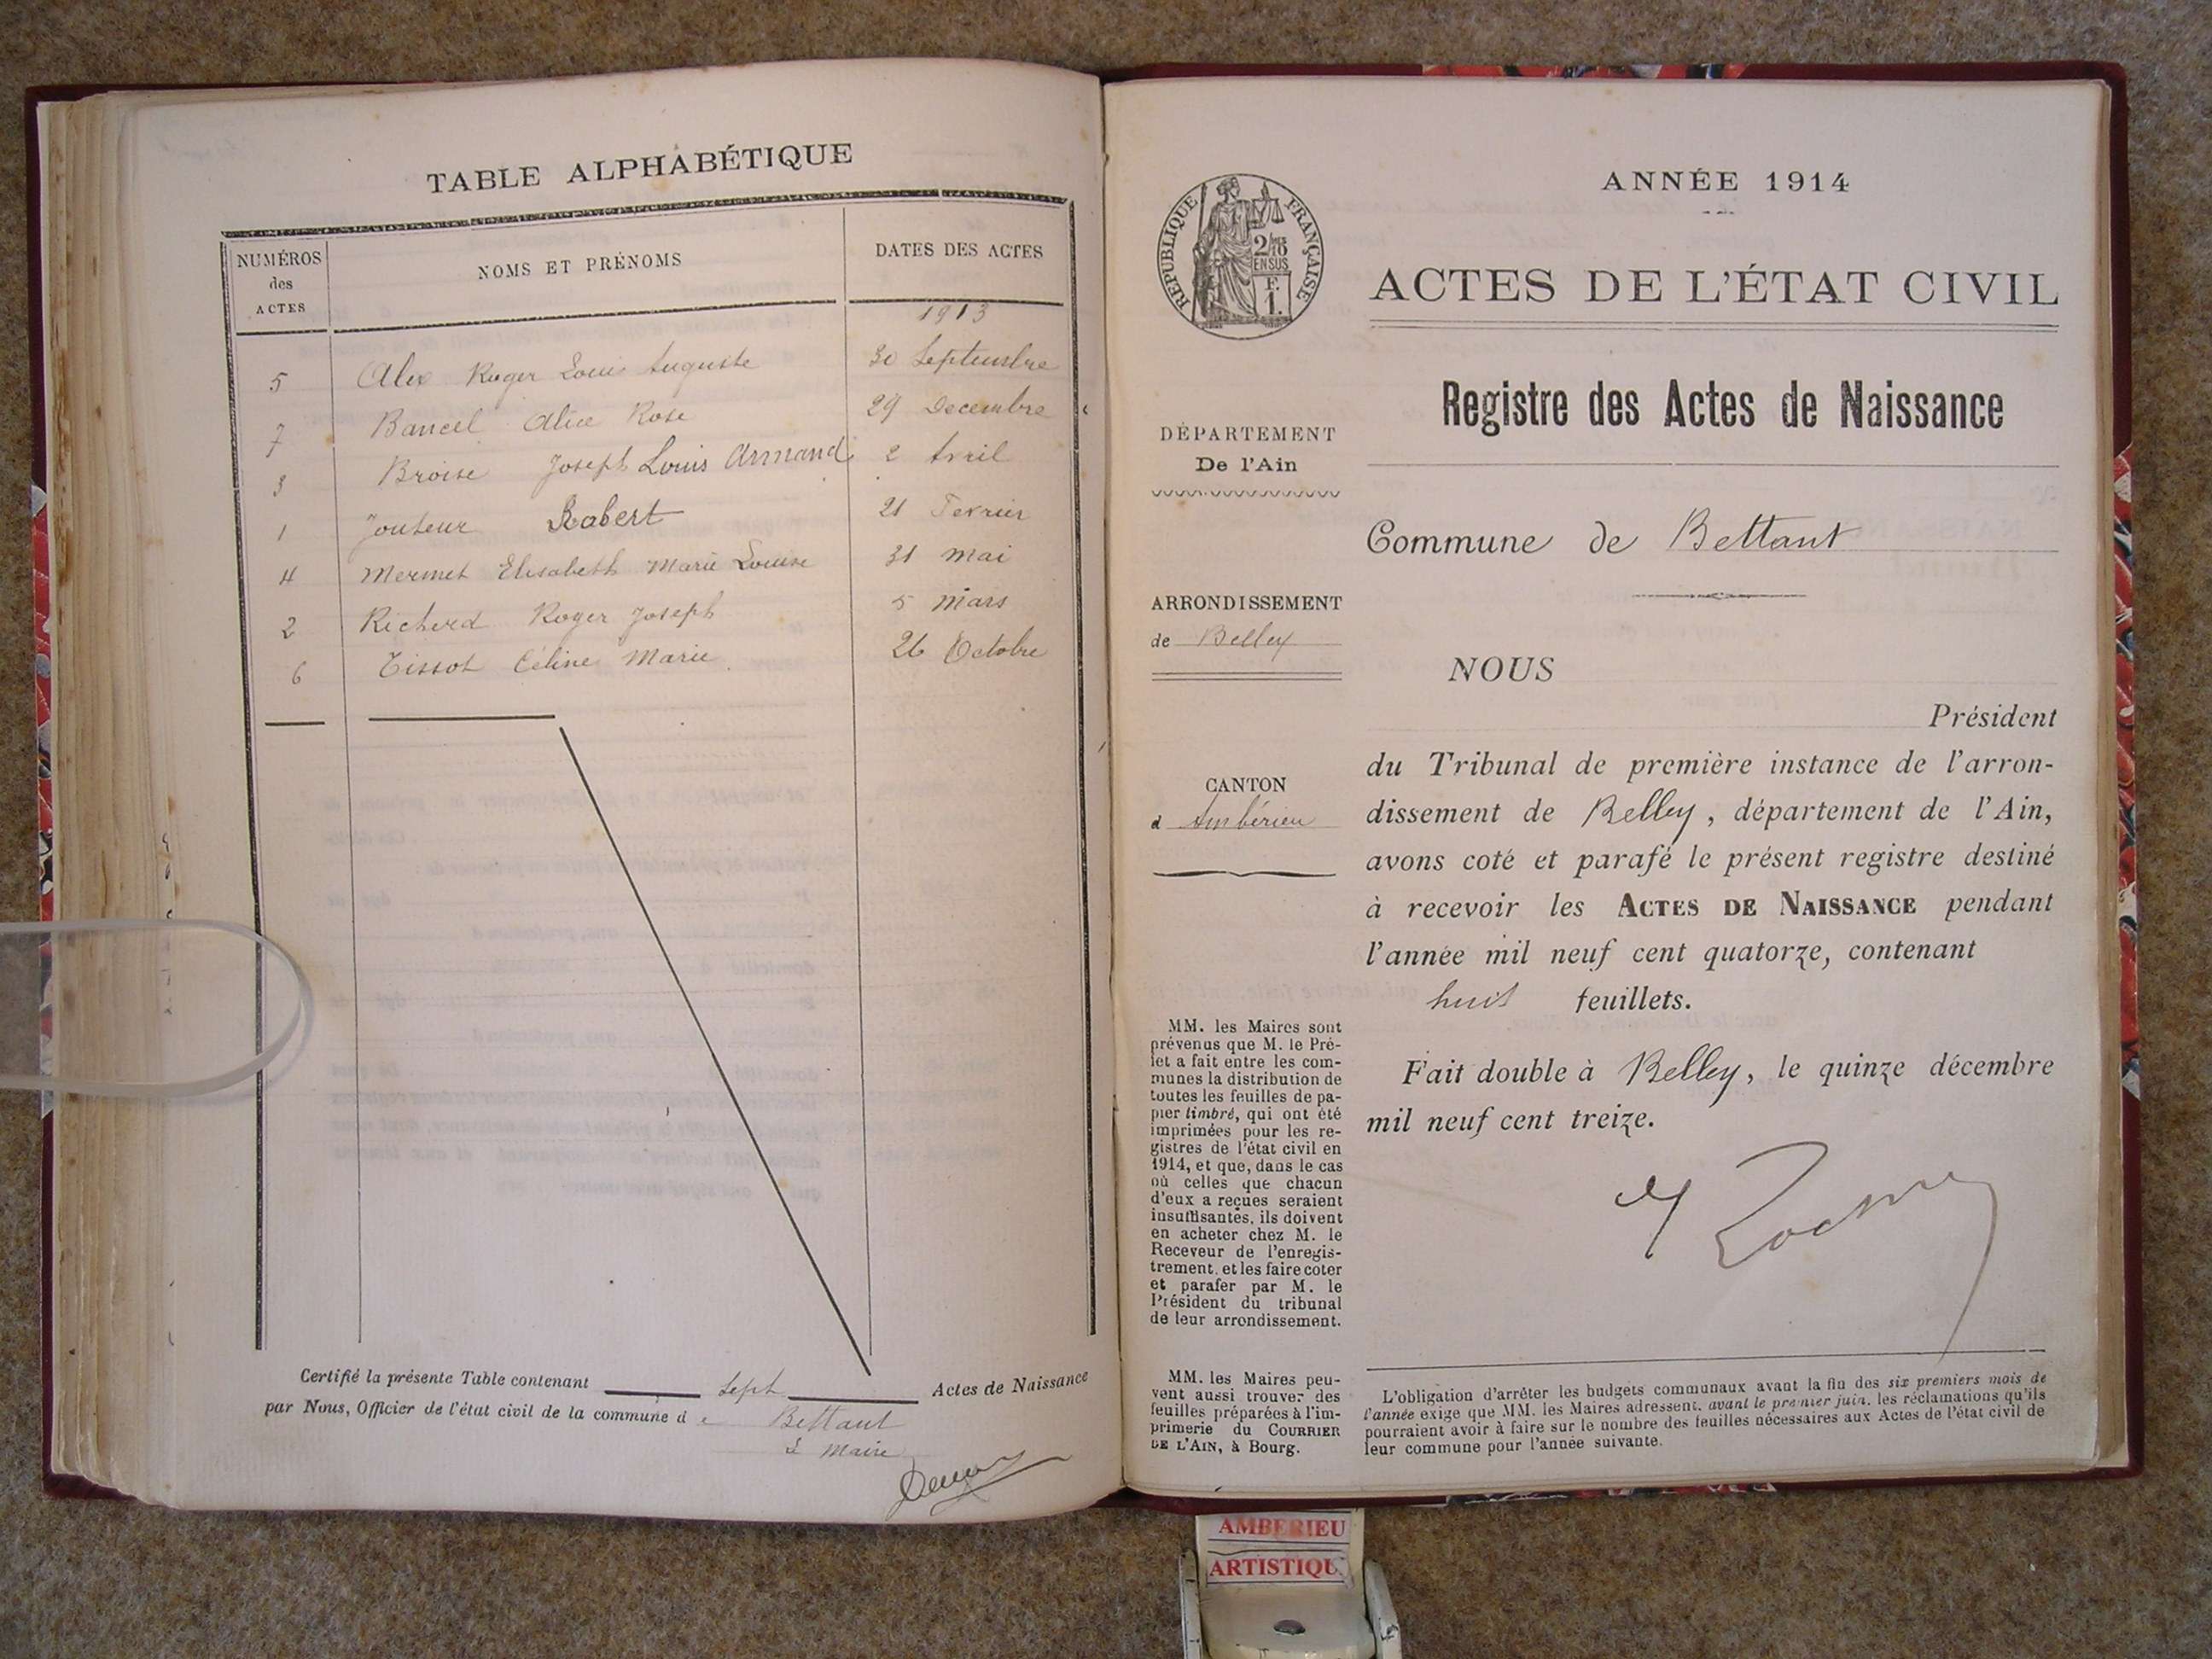 TABLE ALPHABÉTIQUE
NUMÉROS des ACTES
NOMS ET PRÉNOMS
DATES DES ACTES
1913
5 Alex Roger Louis Auguste 30 Septembre
7 Bancel Alice Rose 29 Decembre
3 Broise Joseph Louis Armand 2 Avril
1 Jouteur Robert 21 Fevrier
4 Mermet Elisabeth Marie Louise 31 Mai
2 Richerd Roger Joseph 5 Mars
6 Tissot Céline Marie 26 Octobre
Certifié la présente Table contenant sept Actes de Naissance
par Nous, Officier de l'état civil de la commune de Bettant
Le Maire
RÉPUBLIQUE FRANÇAISE
2/10
EN SUS
F.
1.
DÉPARTEMENT
De l'Ain
ARRONDISSEMENT
de Belley
CANTON
d Ambérieu
MM. les Maires sont
prévenus que M. le Pré-
fet a fait entre les com-
munes la distribution de
toutes les feuilles de pa-
pier timbré, qui ont été
imprimées pour les re-
gistres de l'état civil en
1914, et que, dans le cas
où celles que chacun
d'eux a reçues seraient
insuffisantes, ils doivent
en acheter chez M. le
Receveur de l'enregis-
trement, et les faire coter
et parafer par M. le
Président du tribunal
de leur arrondissement.
MM. les Maires peu-
vent aussi trouver des
feuilles préparées à l'im-
primerie du COURRIER
DE L'AIN, à Bourg.
ANNÉE 1914
ACTES DE L'ÉTAT CIVIL
Registre des Actes de Naissance
Commune de Bettant
NOUS
Président
du Tribunal de première instance de l'arron-
dissement de Belley, département de l'Ain,
avons coté et parafé le présent registre destiné
à recevoir les ACTES DE NAISSANCE pendant
l'année mil neuf cent quatorze, contenant
huit feuillets.
Fait double à Belley, le quinze décembre
mil neuf cent treize.
L'obligation d'arrêter les budgets communaux avant la fin des six premiers mois de
l'année exige que MM. les Maires adressent, avant le premier juin, les réclamations qu'ils
pourraient avoir à faire sur le nombre des feuilles nécessaires aux Actes de l'état civil de
leur commune pour l'année suivante.
AMBERIEU
ARTISTIQU